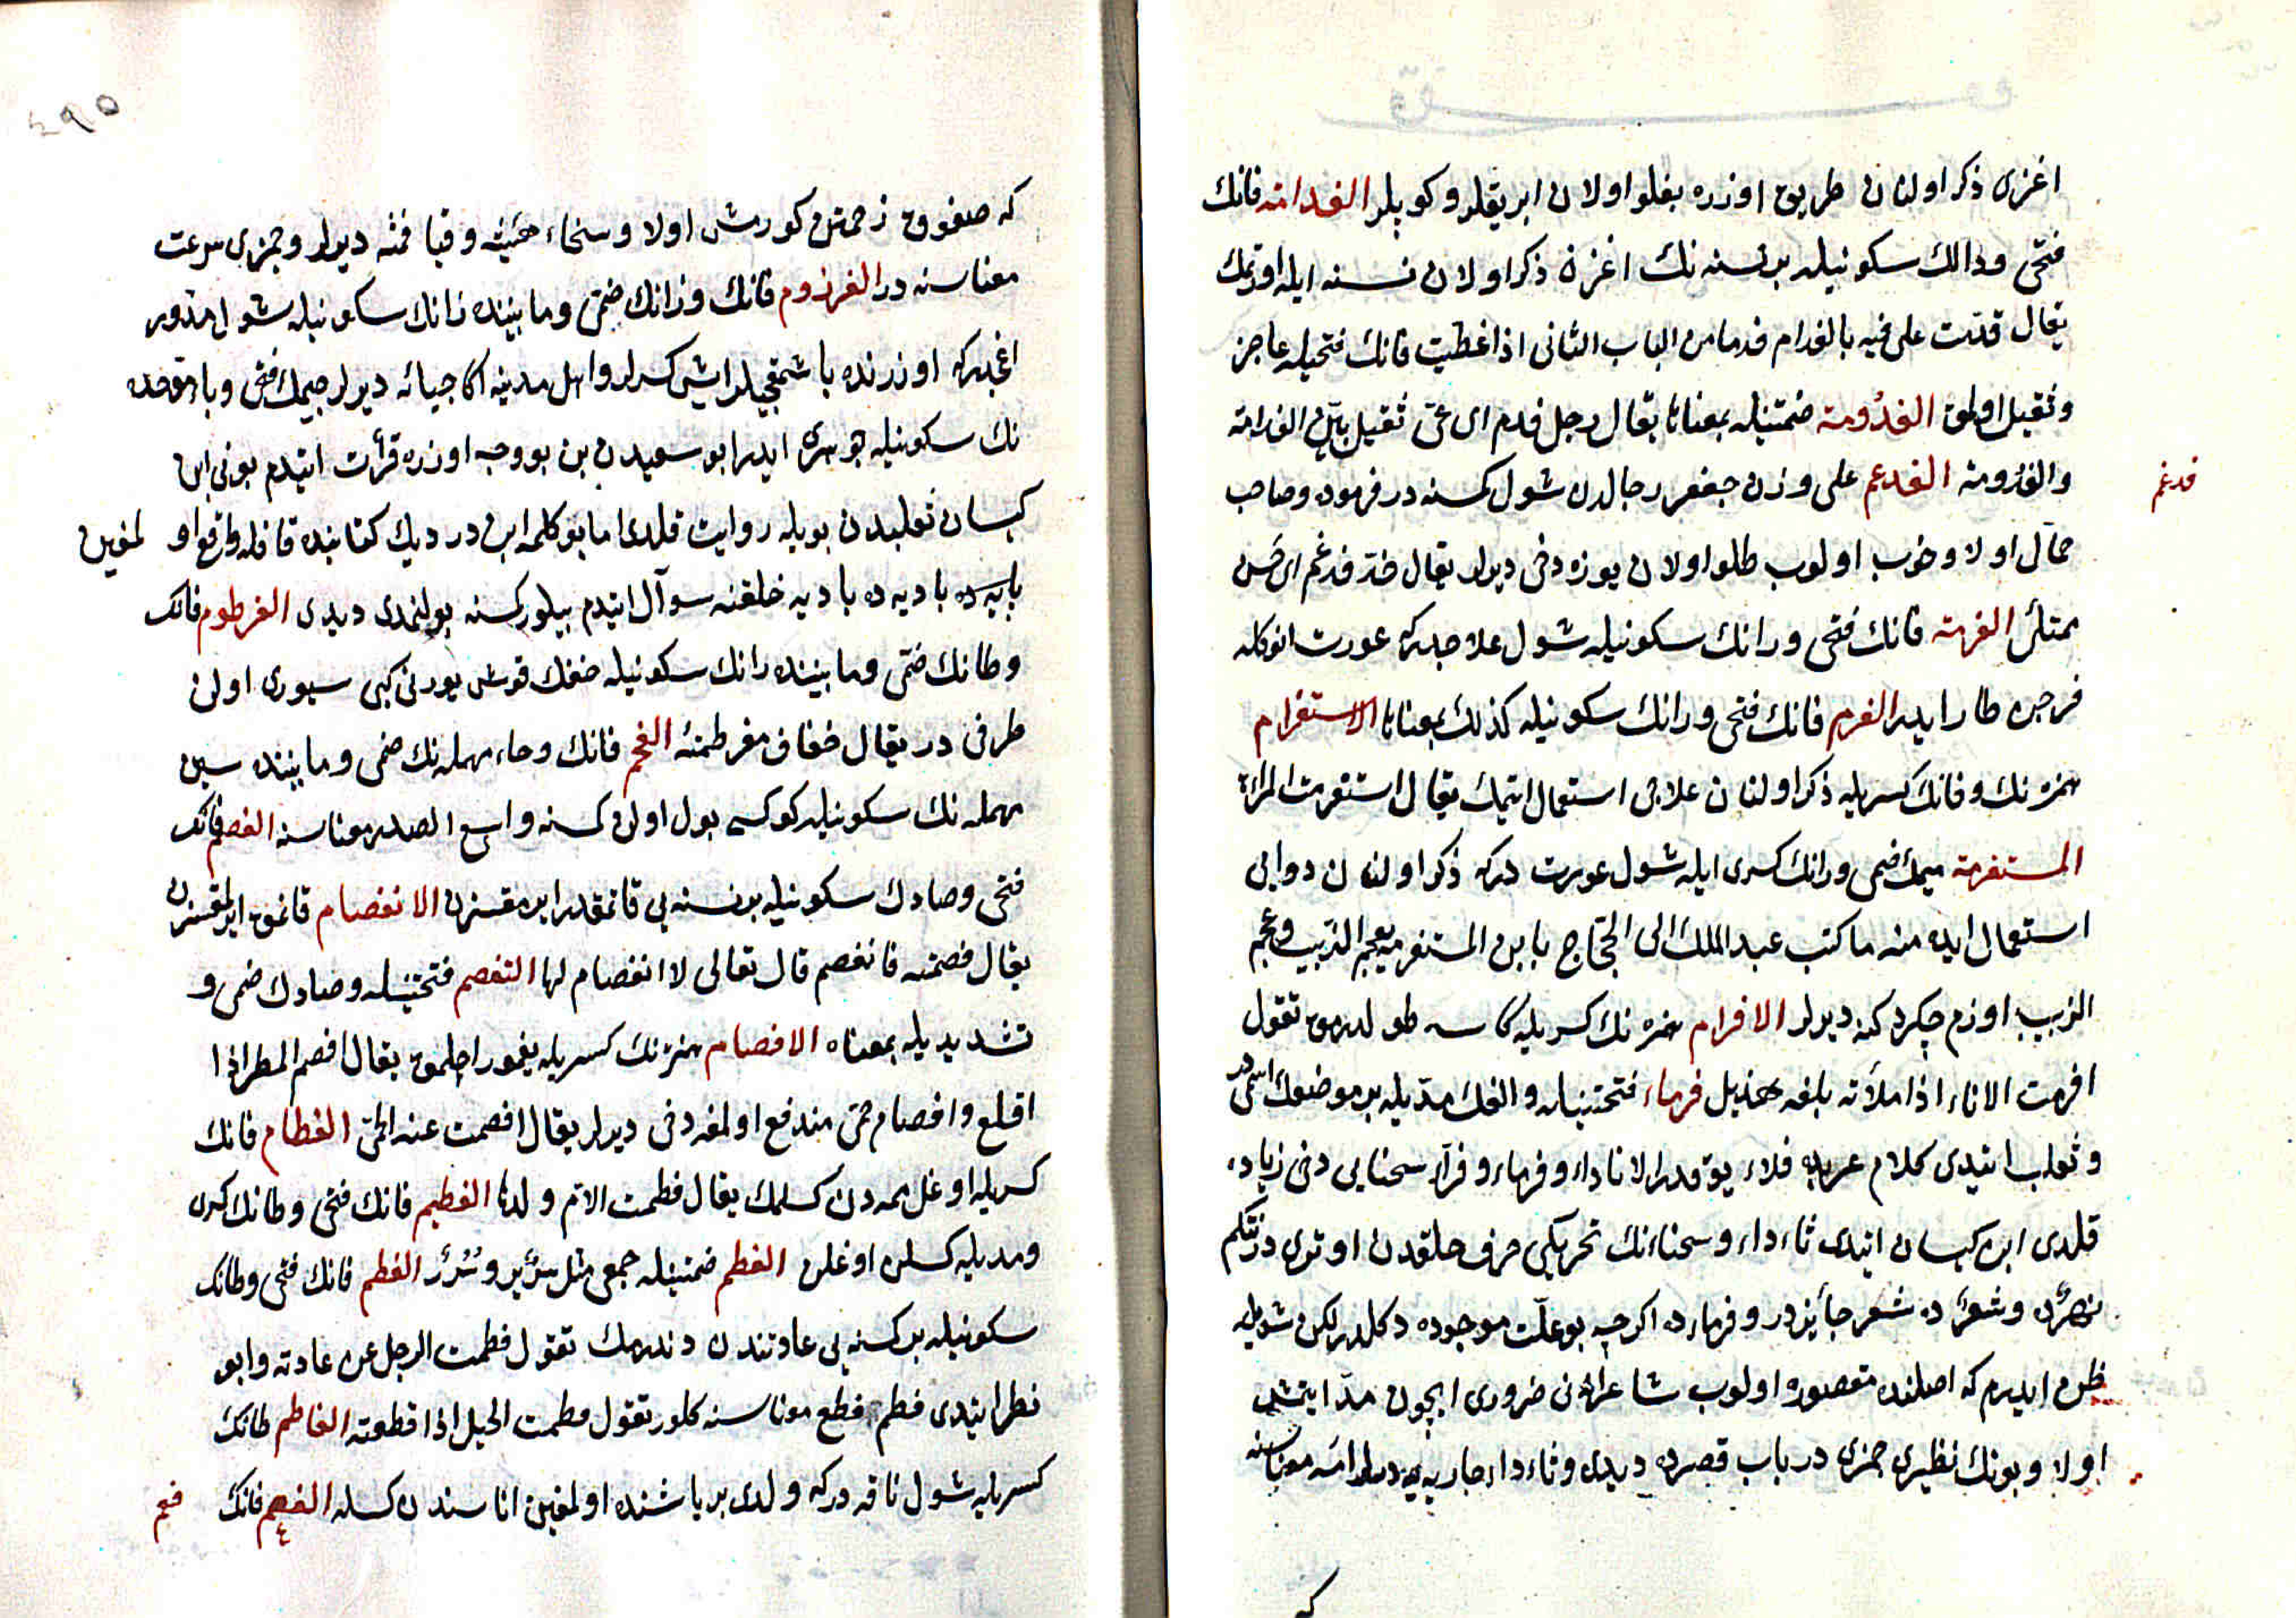 اغزى ذكر اولنان طريق اوزره بغلو اولان ابريقلر و كوپلر الفدامة فانك
فتحى و دالك سكونيله بر نسنه نك اغزن ذكر اولان نسنه ايله اورتمك
يقال فدمت على فيه بالفدام فدما من الباب الثانى اذا غطيت فانك فتحيله عاجز
و ثقيل اولمق الفدومة ضمتينله بمعناها يقال رجل فدم اى عىّ ثقيل بيّن الفدامة
والفدومة الفدغم على وزن جعفر رجالدن شول كمسنه در فرموده و صاحب
فدغم
جمال اولا و خوب اولوب طلو اولان يوزه دخى ديرلر يقال خدّ فدغم اى حسن
ممتلئ الفرمة فانك فتحى و رانك سكونيله شول علاجدركه عورت انوكله
فرجن طار ايدر الفرم فانك فتحى و رانك سكونيله كذلك بمعناها الاستفرام
همزه نك و فانك كسريله ذكر اولنان علاجى استعمال ايتمك يقال استفرمت المرأة
المستفرمة ميمك ضمى و رانك كسرى ايله شول عورت دركه ذكر اولنان دوايى
استعمال ايده منه ما كتب عبد الملك الى الحجاج يا ابن المستفرمة بعجم الزبيب و عجم
الزبيب اوزم چكردكنه ديرلر الافرام همزه نك كسريله كاسه طولدرمق تقول
افرمت الاناء اذا ملأته بلغه هذيل فرماء فتحتينله و الفك مديله بر موضعك اسمى در
و ثعلب ايتدى كلام عربده فعلاء يوقدر الا ثاداء و فرماء و فرّاء سحنايى دخى زياده
قلدى ابن كيسان ايتدى ثاءداء و سحناءنك تحريكى حرف حلقدن اوتورى در نتكم
نهرده و شعرده شعر جايزدر و فرماءده اكرچه بو علت موجوده دكلدر لكن شويله
ظن ايدرم كه اصلنده مقصوره اولوب شاعر انى ضرورى ايچون مدّ ايتمش
اولا و بونك نظيرى جمزى در باب قصرده ديدى و ثاءداء جاريه يه ديرلر امه معناسنه
كه
٤٩٥
كه صغوق زحمتن كورمش اولا و سخناء هيئته و قيافته ديرلر و جمزى سرعت
معناسنه در الفرزوم فانك و زانك ضمى و مابينده رانك سكونيله شول مدوّر
اغجدركه اوزرنده باشمقجيلر ايش كسرلر و اهل مدينه اكا جبأة ديرلر جيمك فتحى و باء موحده
نك سكونيله جوهرى ايدر ابو سعيددن بن بو وجه اوزره قرأت ايتدم بونى ابن
كيسان ثعلبدن بويله روايت قلدى اما بو كلمه ابن دريدك كتابنده قافله واقع او لمغين
باديه ده باديه خلقنه سوآل ايتدم بيلور كسنه بولنمدى ديدى الفرطوم فانك
و طانك ضمى و مابينده رانك سكونيله خفك قوش بورنى كبى سيورى اولن
طرفى در يقال خفاف مفرطمة الفحم فانك و حاء مهمله نك ضمى و مابينده سين
مهمله نك سكونيله كوكسى بول اولن كسنه واسع الصدر معناسنه الفصم فانك
فتحى و صادك سكونيله بر نسنه يى قانمقدر ايرمقسزن الانفصام قانمق ايرلمقسزن
يقال فصمته فانفصم قال تعالى لا انفصام لها التفصم فتحتينله و صادك ضمى و
تشديديله بمعناه الافصام همزه نك كسريله يغمور اچلمق يقال افصم المطر اذا
اقلع و افصام حمّى مندفع اولمغه دخى ديرلر يقال افصمت عنه الحمّى الفطام فانك
كسريله اوغل ممه دن كسلمك يقال فطمت الامّ ولدها الفطيم فانك فتحى و طانك كسرى
و مديله كسلن اوغلن الفطم ضمتينله جمعى مثل سرير و سُرُر الفطم فانك فتحى و طانك
سكونيله بر كسنه يى عادتندن دندرمك تقول فطمت الرجل عن عادته و ابو
نصر ايتدى فطم قطع معناسنه كلور تقول فطمت الحبل اذا قطعته الفاطم طانك
كسريله شول ناقه دركه ولدى بر ياشنده اولمغين اناسندن كسله الفعم فانك
فعم